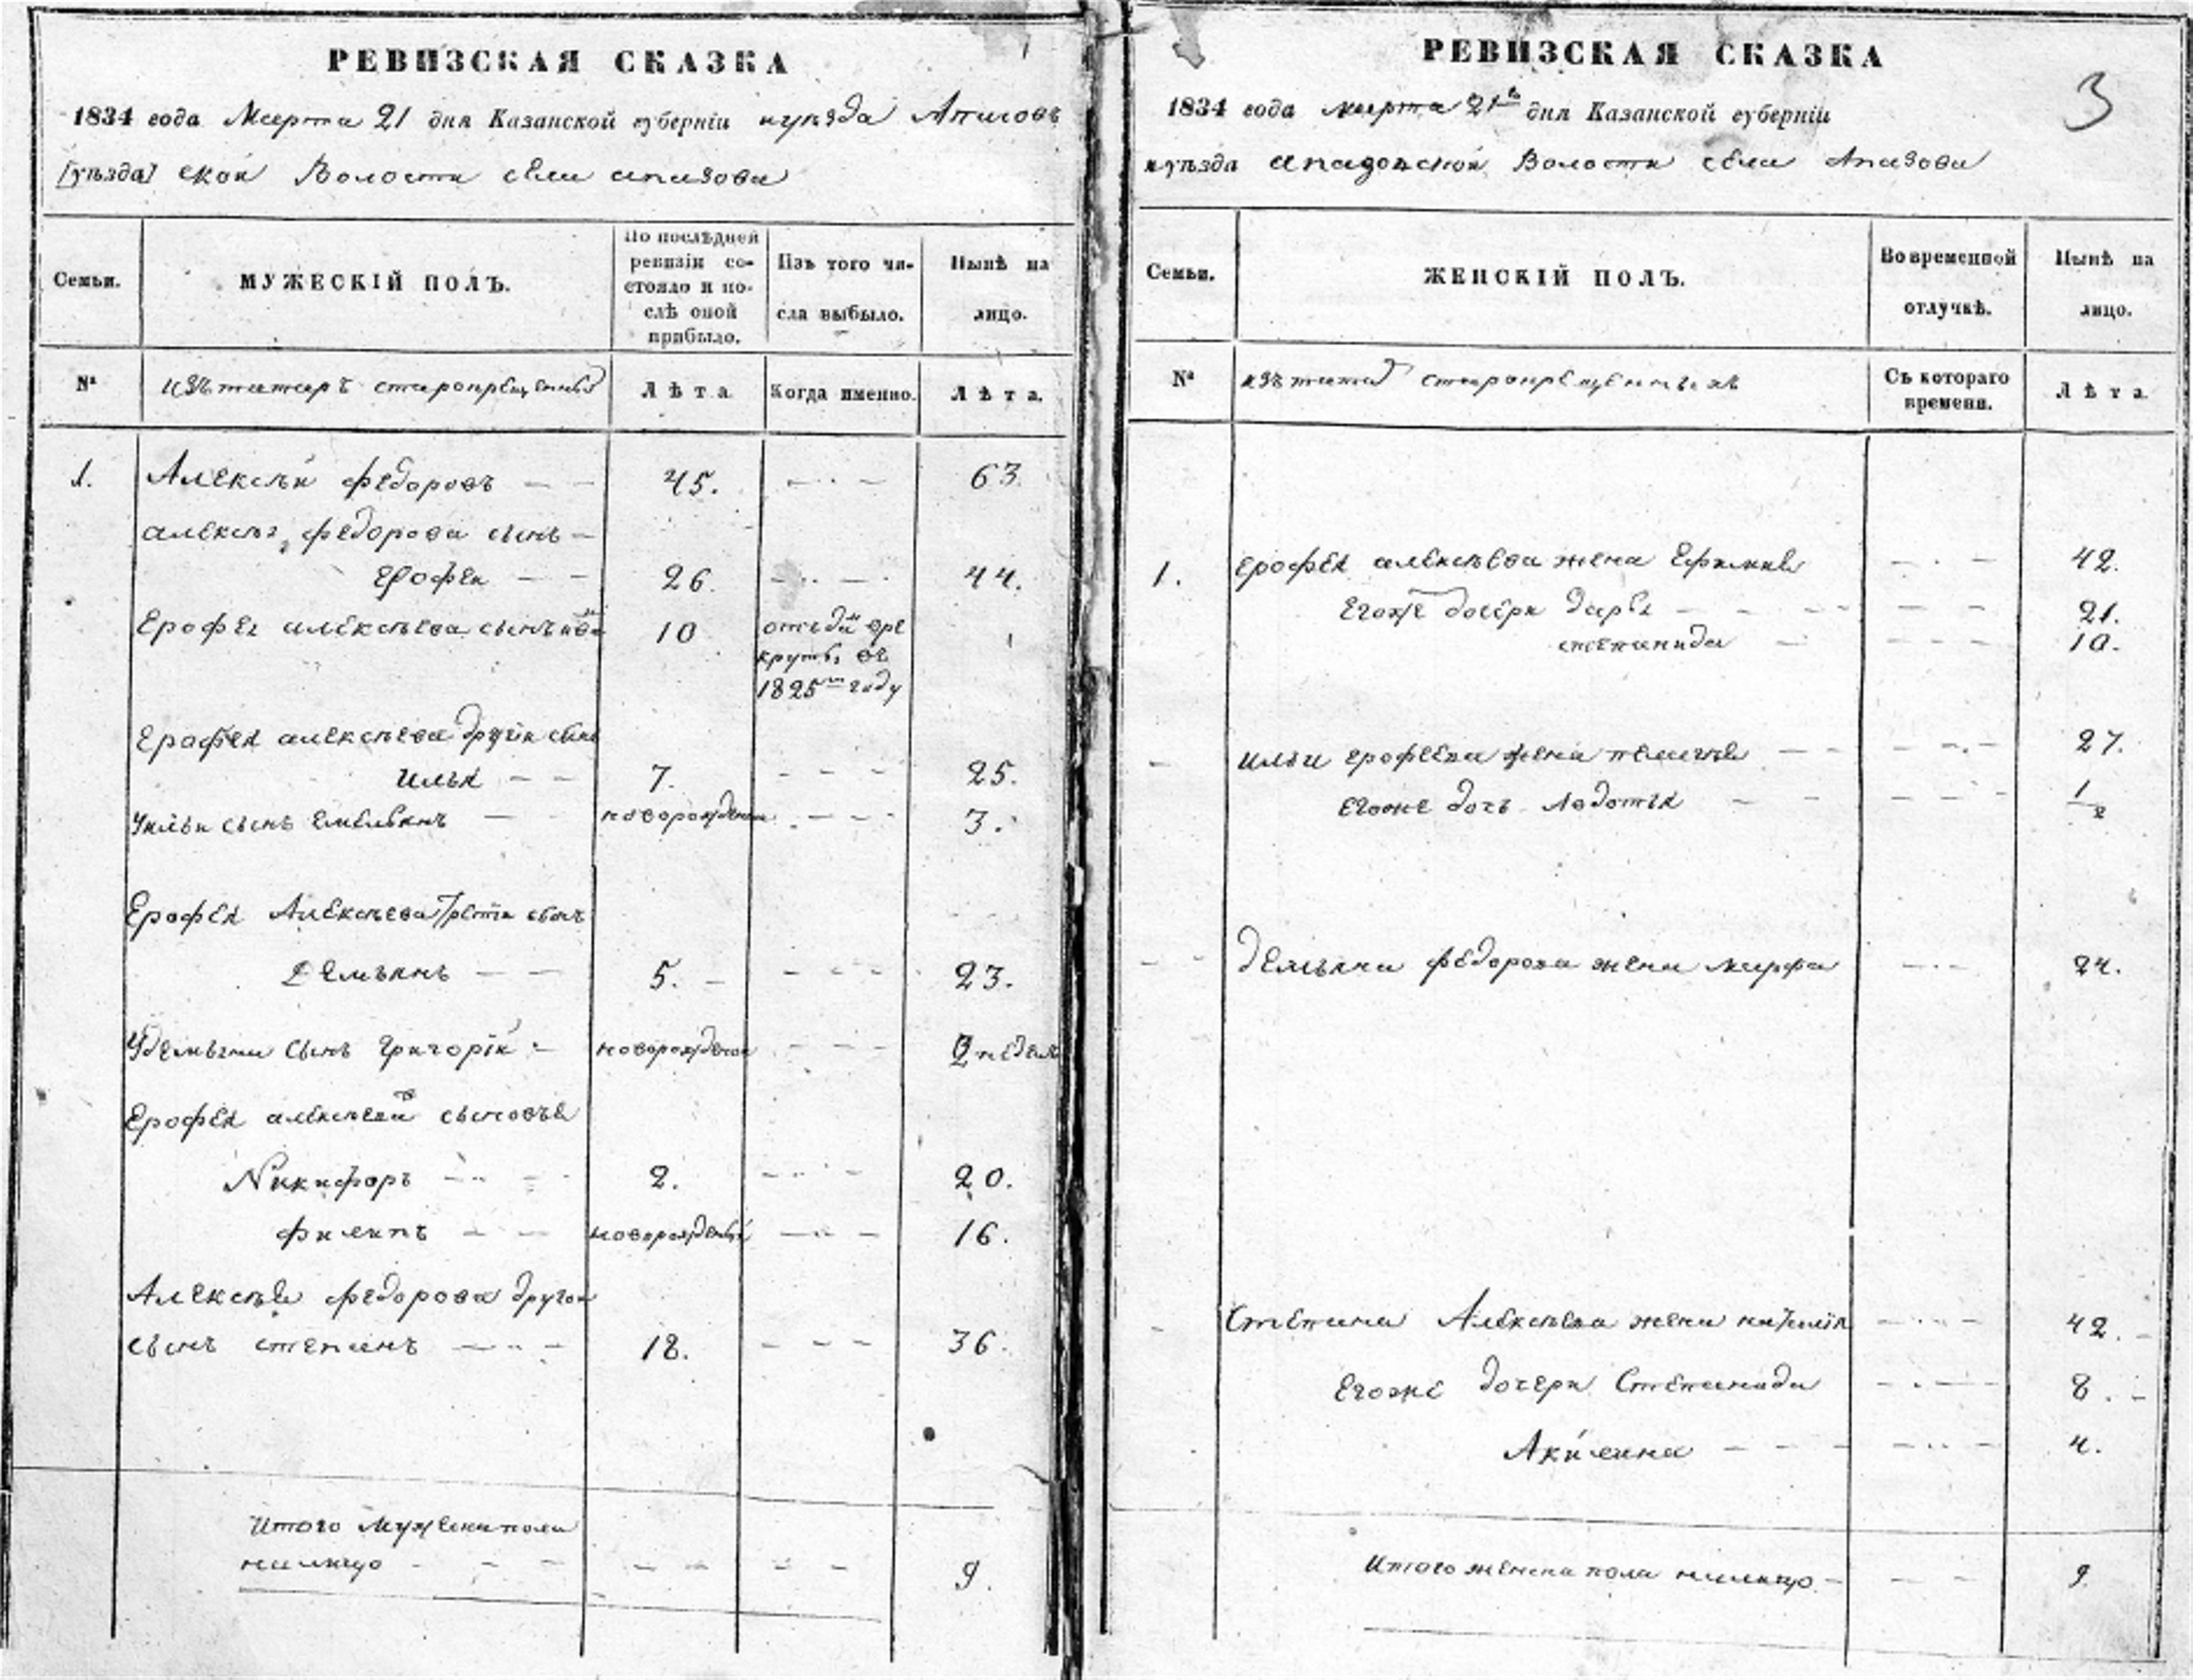 РЕВИЗСКАЯ СКАЗКА
1834 года Марта 21 дня Казанской губерніи и уѣзда Апазов
[уѣзда] ской Волости села апазова
Семьи.
МУЖЕСКІЙ ПОЛЪ.
По послѣдней ревизіи со-
стояло и по-
слѣ оной
прибыло.
Изъ того чи-
сла выбыло.
Нынѣ на
лицо.
№
изъ татаръ старокрещенныхъ
Лѣта
Когда именно.
Лѣта.
1. Алексѣй федоровъ 45. 63
алексѣя федорова сынъ
Ерофей 26 44.
Ерофея алексѣева сынъ 10 отъдан вре
круты въ
1825 году
Ерофея алексѣева другiй сынъ
илья 7. 25.
Уильи сынъ Емельянъ новорожденъ 3.
Ерофея Алексѣева Третiй сынъ
Демьянъ 5. 23.
Удемьяна сынъ григорiй новорожденъ недел
Ерофея алексѣева сыновья
Никифоръ 2. 20.
филипъ новорожденный 16.
Алексѣя федорова другой
сынъ степанъ 18. 36.
Итого Мужеска пола
налицо 9.
РЕВИЗСКАЯ СКАЗКА
3
1834 года марта 21 дня Казанской губерніи
и уѣзда апазовской Волости села Апазова
Семьи.
ЖЕНСКІЙ ПОЛЪ.
Во временной
отлучкѣ.
Нынѣ на
лицо.
№
изъ татар старокрещенныхъ
Съ котораго
времени.
Лѣта
1. ерофея алексѣева жена Ефимия 42.
Егоже дочери дарья 21.
степанида 10.
ильи ерофеева жена пелагея 27.
Егоже дочь 1/2
демьяна федорова жена марфа 24.
Степана Алексѣева жена наталiя 42.
Егоже дочери Степанида 8.
Акилина 4.
Итого женска пола налицо 9